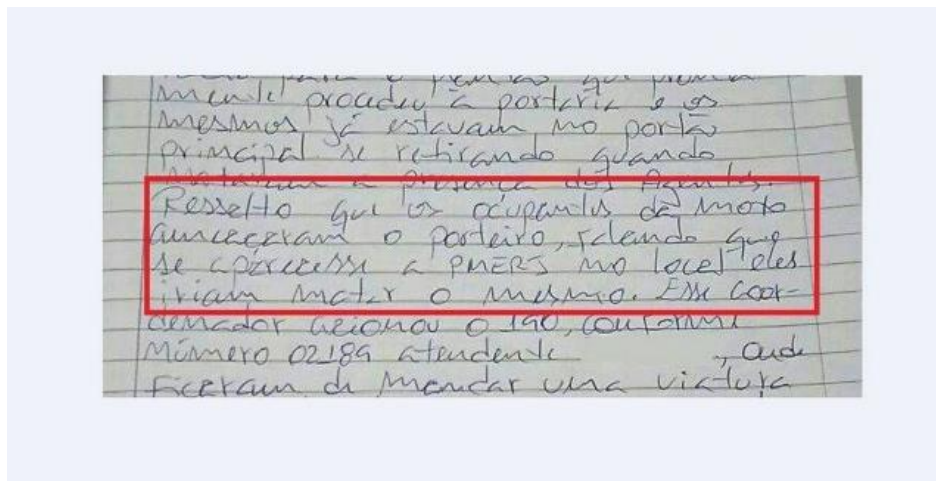 mente procedeu a portaria e os
mesmos já estavam no portão
principal se retirando quando
notaram a presença dos Agentes.
Resselto que os ocupantes da moto
ameaçaram o porteiro, falando que
se aparecesse a PMERJ no local eles
iriam matar o mesmo. Esse coor-
denador acionou o 190, conforme
número 02189 atendente , onde
ficaram de mandar uma viatura